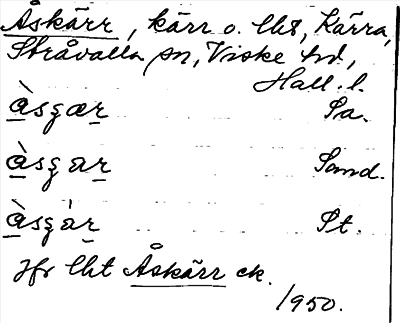 Åskärr, kärr o. lht, Kärra,
Stråvalla sn, Viske hd,
Hall. l.
àsʒær Sa.
àsʒar Sand.
àsʒàr St.
Jfr lht Åskärr ek.
1950.